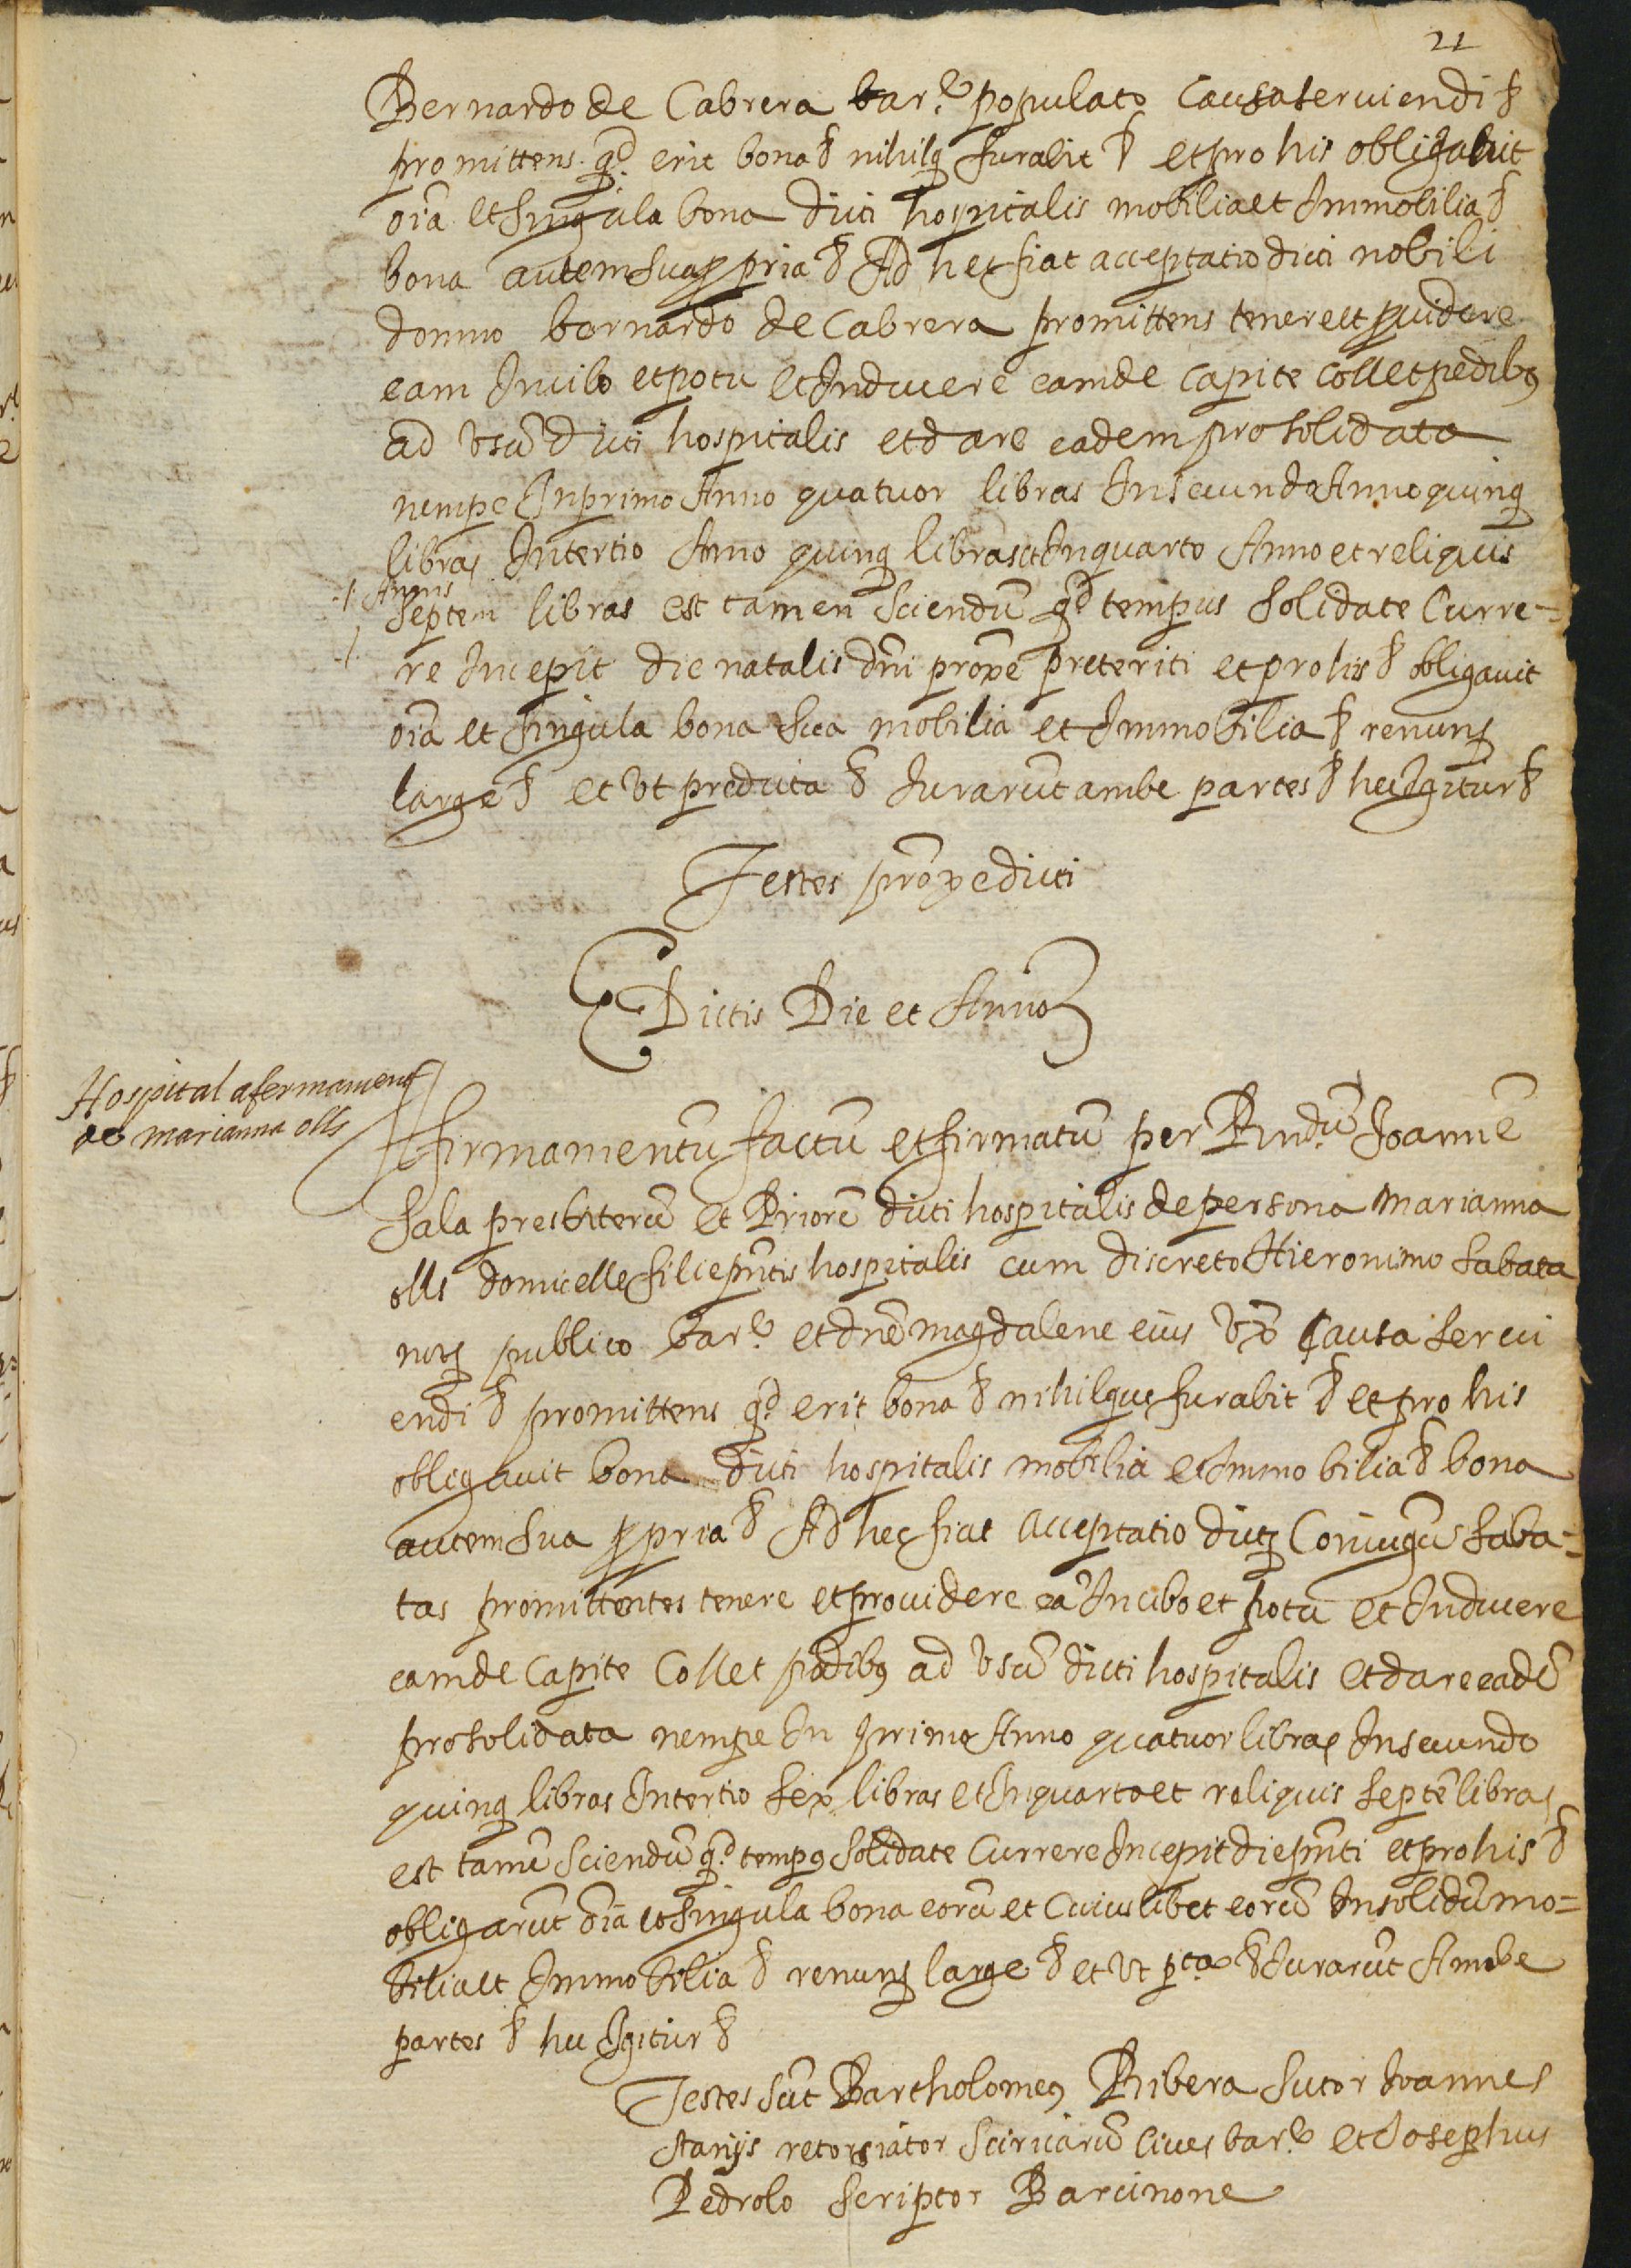 21
Bernardo de Cabrera bar.e populato Causa serviendi &
promittens. qd. erit bona & nihilq furabit & et pro his obligabit
oiã et singula bona dicti hospitalis mobilia et Immobilia &
bona autem sua ppria & Ad hec fiat acceptatio dicti nobili
domno bernardo de Cabrera promittens tenere et pvidere
eam In cibo et potu et Induere eam de Capite Coll et pedibus
ad Usũ dicti hospitalis et dare eadem pro solidata
nempe In primo Anno quatuor libras In secundo Anno quinq
libras In tertio Anno quinq libras et In quarto Anno et reliquis
./. Annis
septem libras est tamen sciendũ qd tempus solidate Curre-
./.
re Incepit die natalis dñi proxe preteriti et pro his & obligavit
oiã et singula bona sua mobilia et Immobilia & renunq
large & et Ut predicta & Jurarũt ambe partes & hec Igitur &
Testes proxe dicti
Dictis Die et Anno
Hospital afermament
de marianna olls
Affirmamentũ factũ et firmatũ per Rndũ Joannẽ
Sala presbiterũ et Priorẽ dicti hospitalis de persona Marianna
olls domicelle filie pñtis hospitalis cum discreto Hieronimo Sabata
notq publico bar.e et dñe magdalene eius Uxe Causa servi
endi & promittens qd. erit bona & nihilque furabit & et pro his
obligavit bona dicti hospitalis mobilia et Immobilia & bona
autem sua ppria & Ad hec fiat Acceptatio dictq Coniugũ Saba-
tas promittentes tenere et providere eã In cibo et potu et Induere
eam de Capite Coll et pedibus ad Usũ dicti hospitalis et dare eadẽ
pro solidata nempe In primo Anno quatuor libras In secundo
quinq libras In tertio sex libras et In quarto et reliquis septẽ libras
est tamẽ sciendũ qd. tempus solidate Currere Incepit die pñti et pro his &
obligarũt oiã et singula bona eorũ et Cuiuslibet eorũ In solidũ mo-
bilia et Immobilia & renunq large & et Ut pcta & Jurarũt Ambe
partes & hec Igitur &
Testes sũt Bartholomeus Ribera sutor Joannes
retorsiator siricarũ Cives bar.e et Josephus
Pedrolo scriptor Barcinone